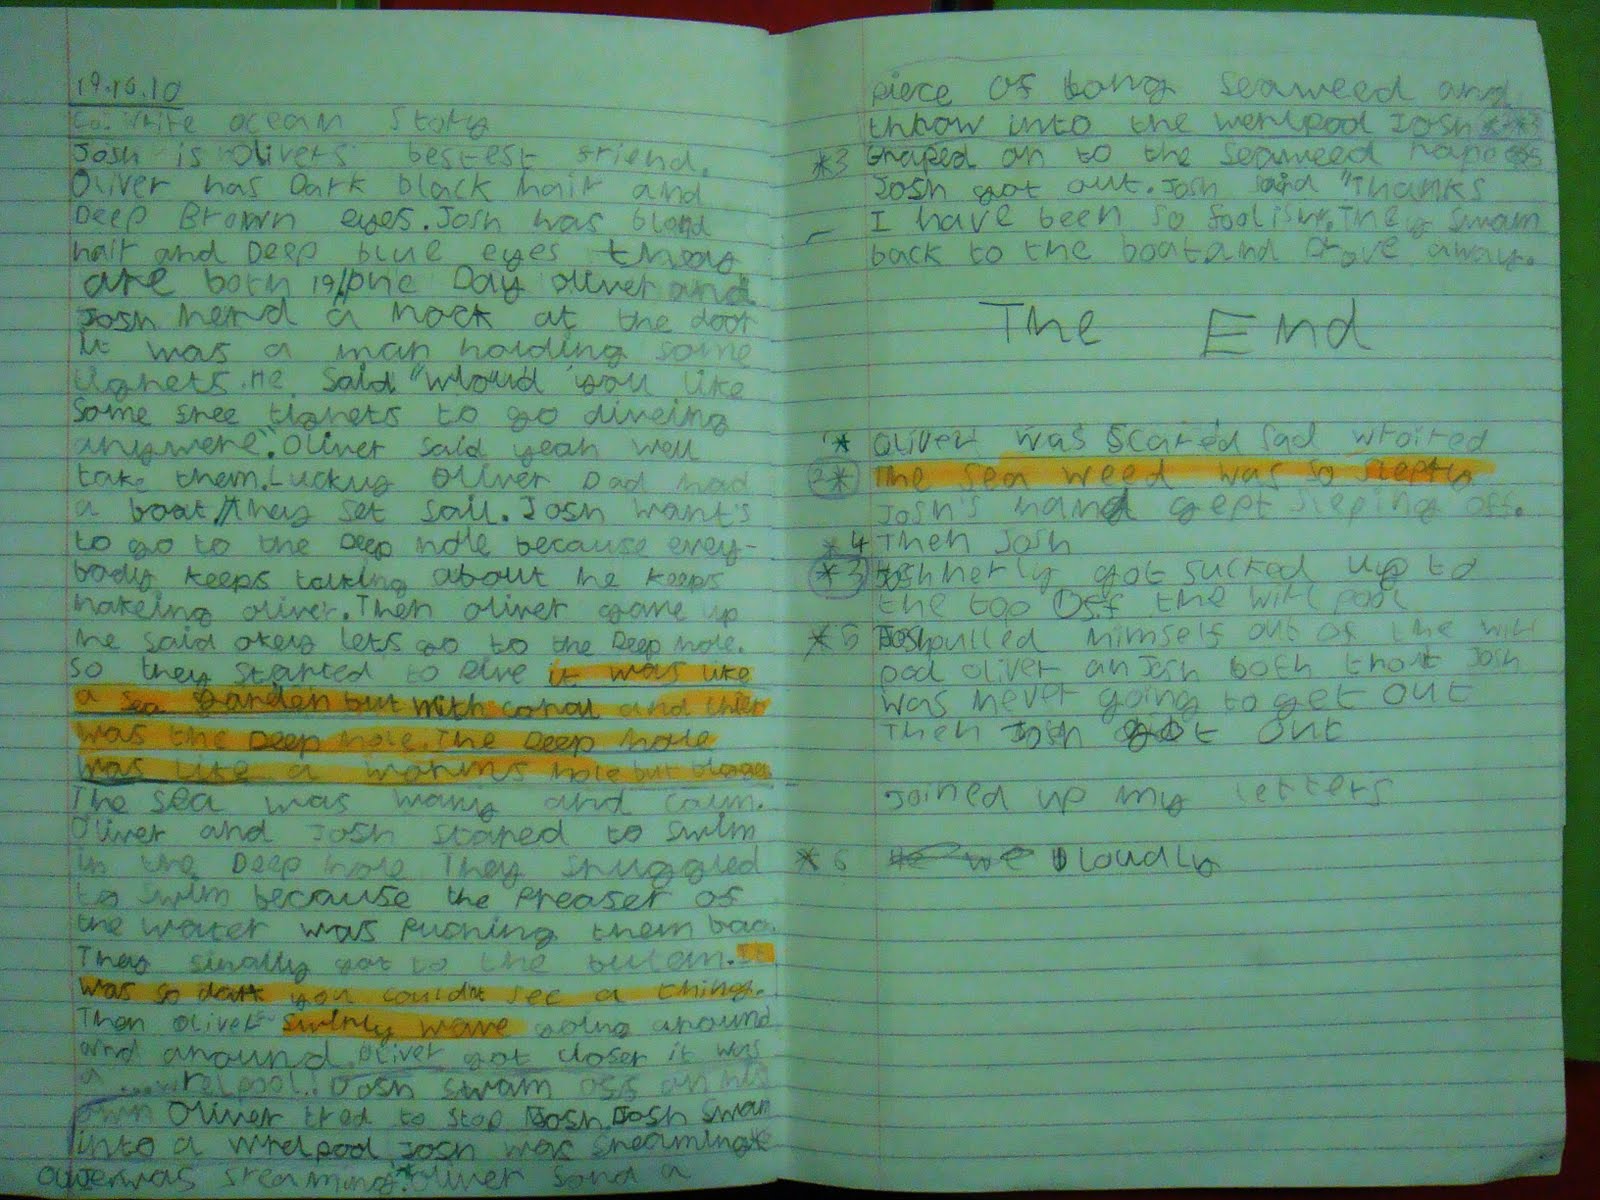 19.10.10
write ocean story
Josh is Olivers bestest friend.
Oliver has Dark black hair and
Deep Brown eyes. Josh was blond
hair and Deep blue eyes
are both 19//one Day Oliver and
Josh herd a nock at the door
it was a man holding some
tighets. He said "wloud you like
some free tighets to go diveing
anywere". Oliver said yeah well
take them. Luckuy Oliver Dad had
a boat // they set sail. Josh want's
to go to the Deep hole because every-
body keeps talking about he keeps
nakeing oliver. Then oliver gave up
he said okey lets go to the Deep hole.
so they started to Dive it was like
a sea Garden but with coral and ther
was the Deep hole. The Deep hole
was like a worms hole but bigger
The sea was warm and calm.
Oliver and Josh started to swim
in the Deep hole They struggled
to swim because the Preaser of
the water was Pushing them bac.
They finally got to the butem. It
was so dark you could'nt see a thing.
Then oliver swirly wave going around
and around. Oliver got closer it was
a ......relpool! Josh swam off on his
own Oliver tred to stop Josh Josh swam
into a wrelpool Josh was screaming
was screaming. Oliver fond a
piece of long seaweed and
throw into the werlpool Josh
*3 graped on to the seaweed
Josh got out. Josh said "Thanks
I have been so foolish. They swam
back to the boat and Drove away.
The End
1* Oliver was scared sad
2* The sea weed was so
Josh's hand cept sleping off.
*4 Then Josh
*3 got sucked up to
the top Off the wirlpool
*5 Josh pulled himself out of the wirl
pool Oliver an Josh both thort Josh
was never going to get out
Then Josh got out
Joined up my letters
*6 we loudly